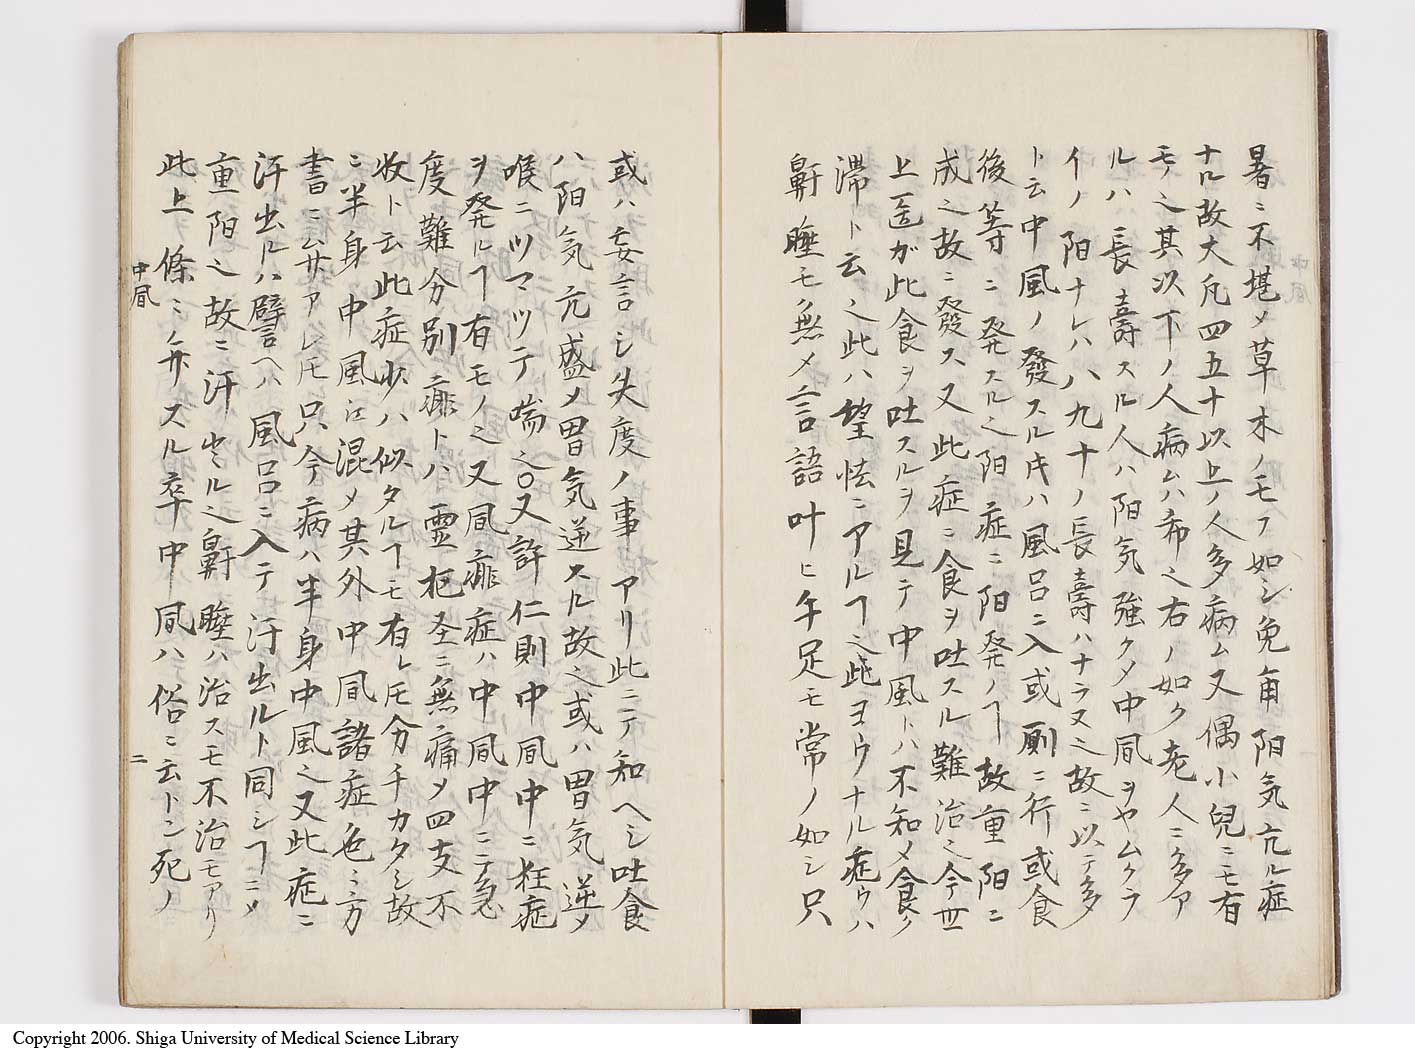 暑ニ不堪メ草木ノモヘ如シ免角阳気亢ル症
ナル故大凡四五十以上ノ人多病ム又偶小兒ニモ有
モノ之其以下ノ人病ムハ希之右ノ如ク老人ニ多ア
ルハ長壽スル人ハ阳気強クメ中凬ヲヤムクラ
イノ阳ナレハ八九十ノ長壽ハナラヌ之故ニ以テ多
ト云中風ノ發スル时ハ風呂ニ入或厠ニ行或食
後等ニ発スル之阳症ニ阳発ノヿ故重阳ニ
成之故ニ發ス又此症ニ食ヲ吐スル難治之今世
上医ガ此食ヲ吐スルヲ見テ中風トハ不知メ食
滞ト云之此ハ望怯ニアルヿ之此ヨウナル症ハ
鼾睡モ無メ言語叶ヒ手足モ常ノ如シ只
或ハ妄言シ失度ノ事アリ此ニテ知ヘシ吐食
ハ阳気亢盛メ胃気逆スル故之或ハ胃気逆メ
喉ニツマツテ喘之〇又許仁則中凬中ニ狂症
ヲ発ルヿ有モノ之又凬痱症ハ中凬中ニテ急
度難分別痱トハ霊枢圣ニ無痛メ四支不
收ト云此症少ハ似タルヿモ有レ𪜈分チカタシ故
ニ半身中風江混メ其外中凬諸症色々方
書ニ出サアレ𪜈只今病ハ半身中風之又此症ニ
汗出ルハ譬ヘハ風呂ニ入テ汗出ルト同シヿニメ
重阳之故ニ汗出ル之鼾睡ハ治スモ不治モアリ
此上條ニノ弁スル卒中凬ハ俗ニ云トン死ノ
中凬
二